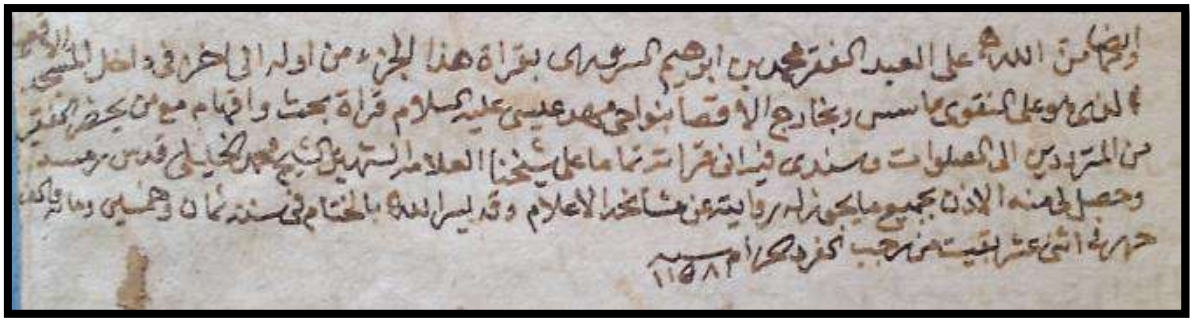 وايضا من الله على العبد الفقير محمد بن ابرهيم بقراة هذا الجزء من اوله الى اخره في داخل المسجد الاقصى
الذي هو على التقوى ماسس وبخارج الاقصا بنواحي مهد عيسى عليه السلام قراة بحث وافهام مع من يحضر الفقير
من المترددين الى الصلوات وسندي فيه اني قراته تماما على شيخنا العلامة الشهير الشيخ محمد الخليلي قدس سره
وحصل لي منه الاذن بجميع ما يجوز له روايته عن مشايخه الاعلام وقد يسر الله بالختام في سنة ثمان وخمسين وماية والف
في اثنى عشر بقيت من رجب الفرد الحرام سنة ١١٥٨